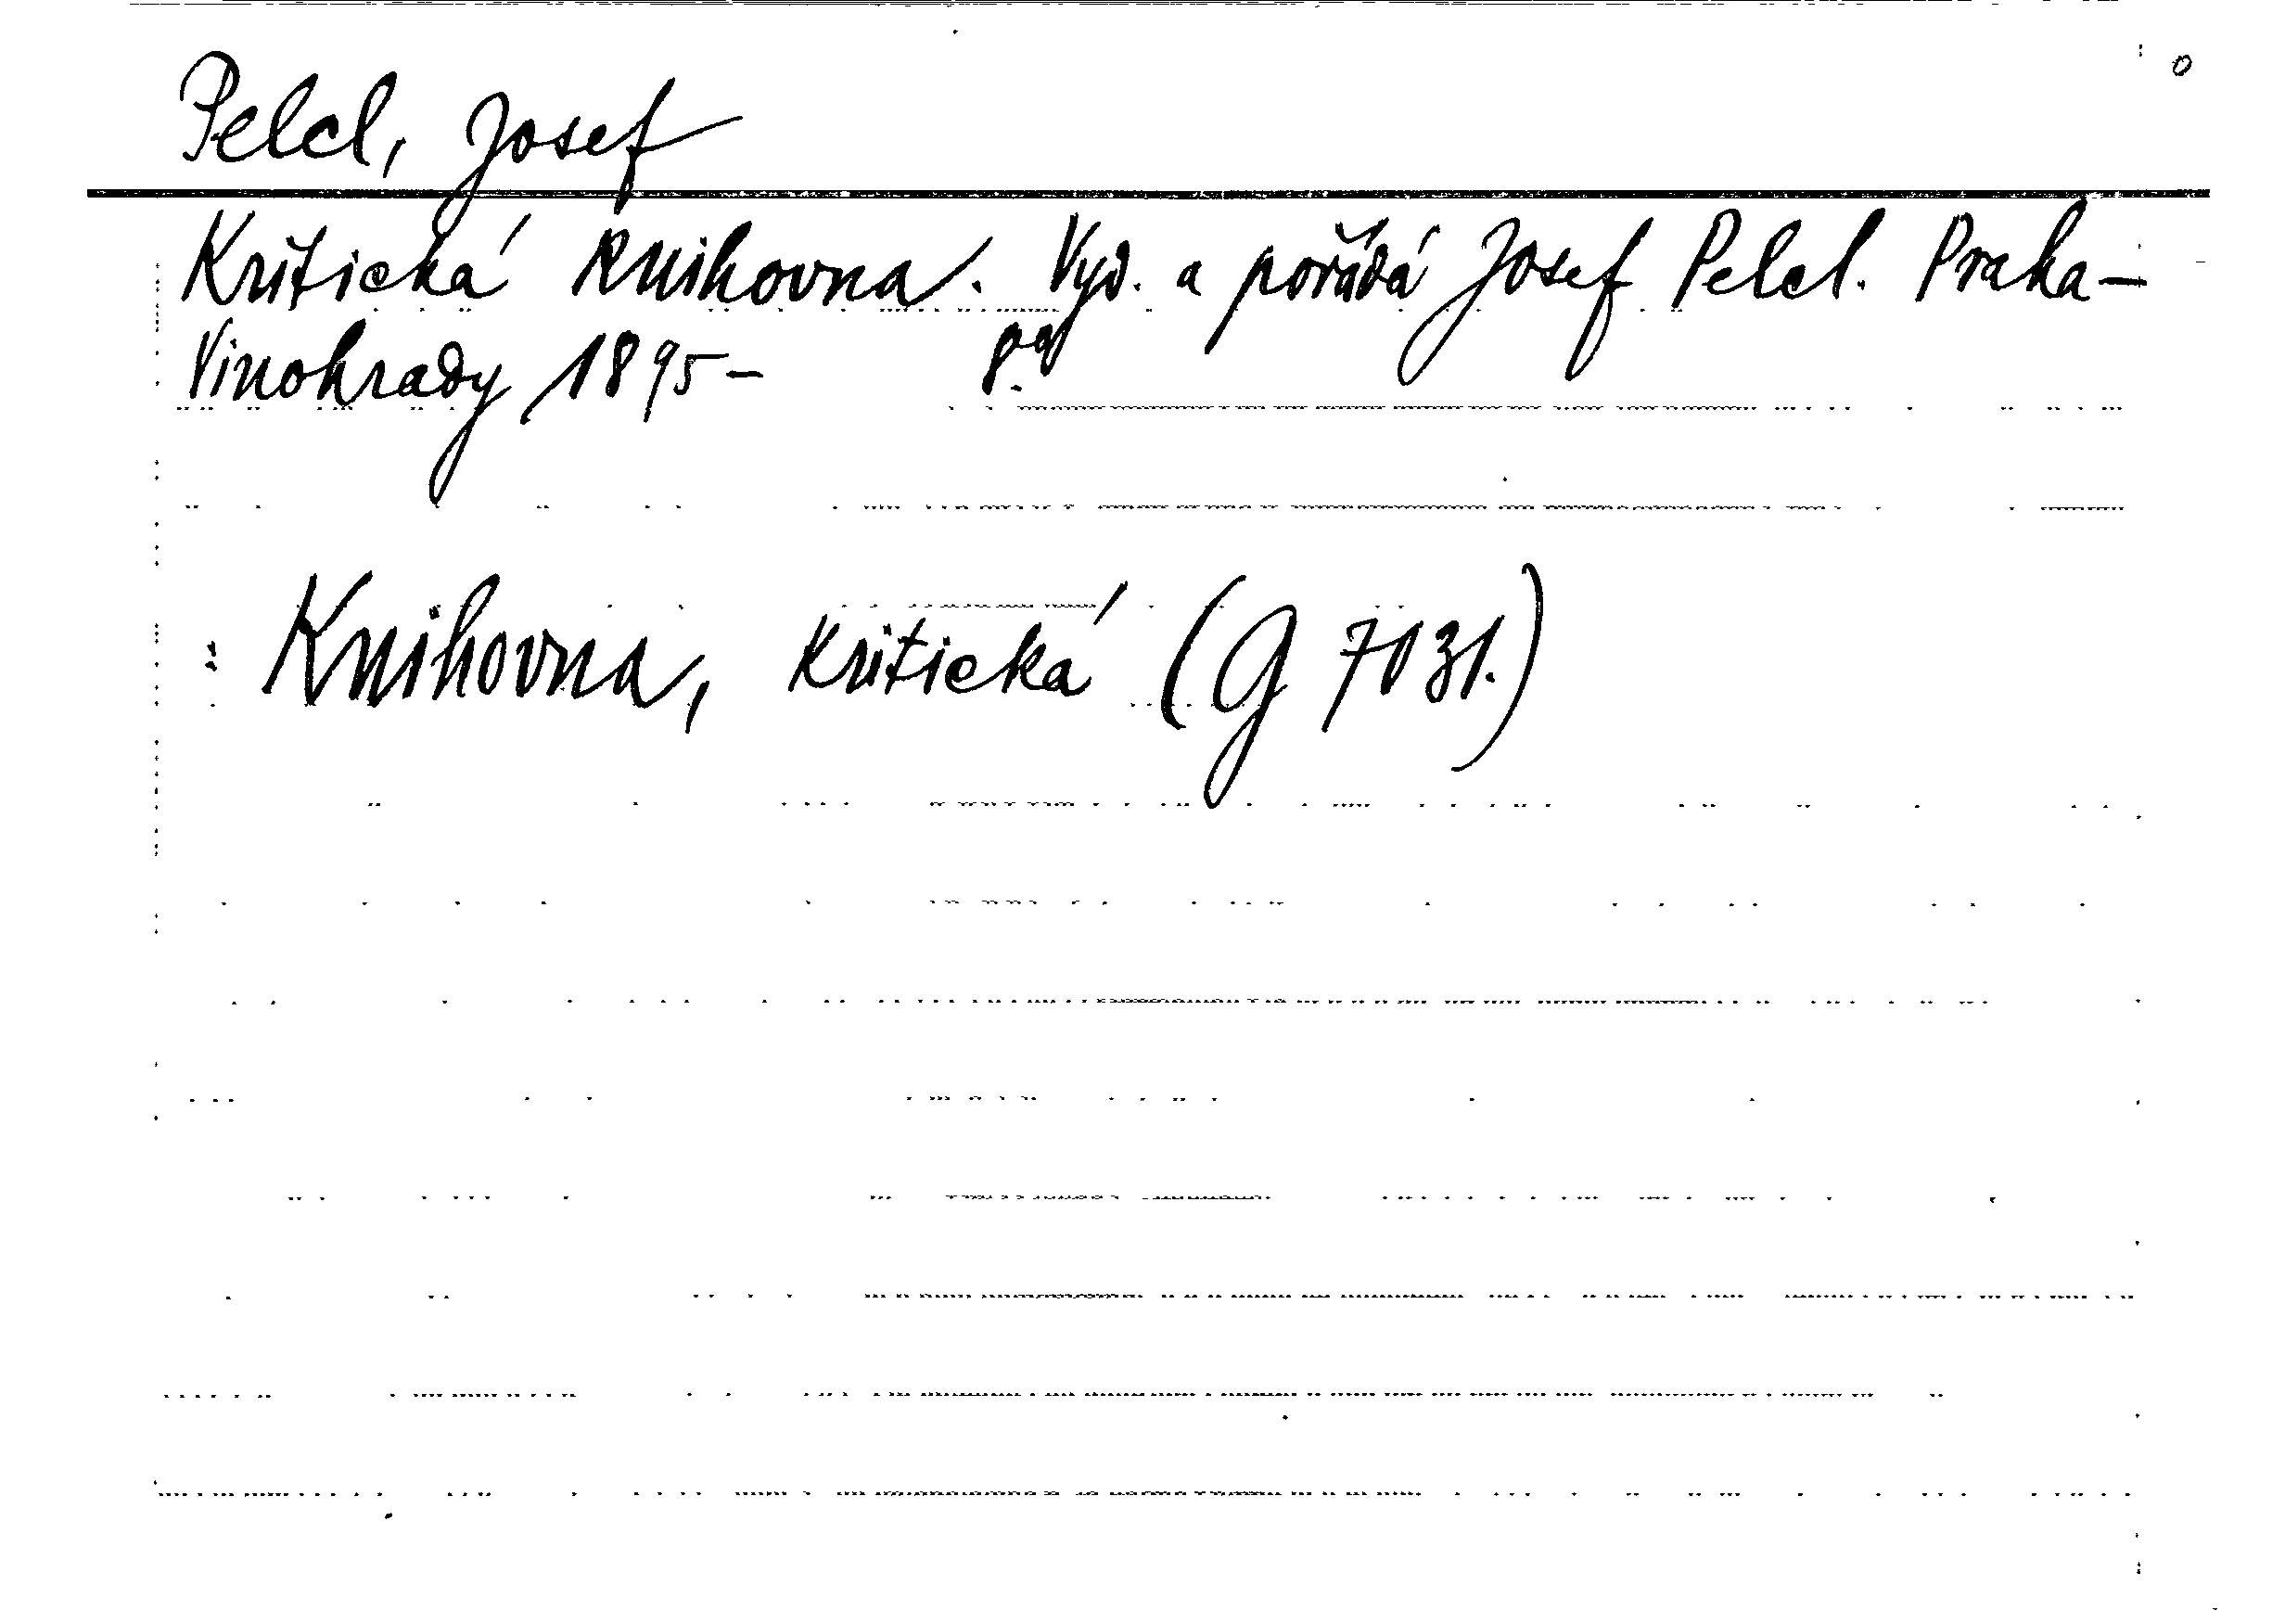 Pelcl, Josef
Kritická knihovna. Vyd. a pořádá Josef Pelcl. Praha–
Vinohrady 1895– 8°
: Knihovna, Kritická (G 7031.)